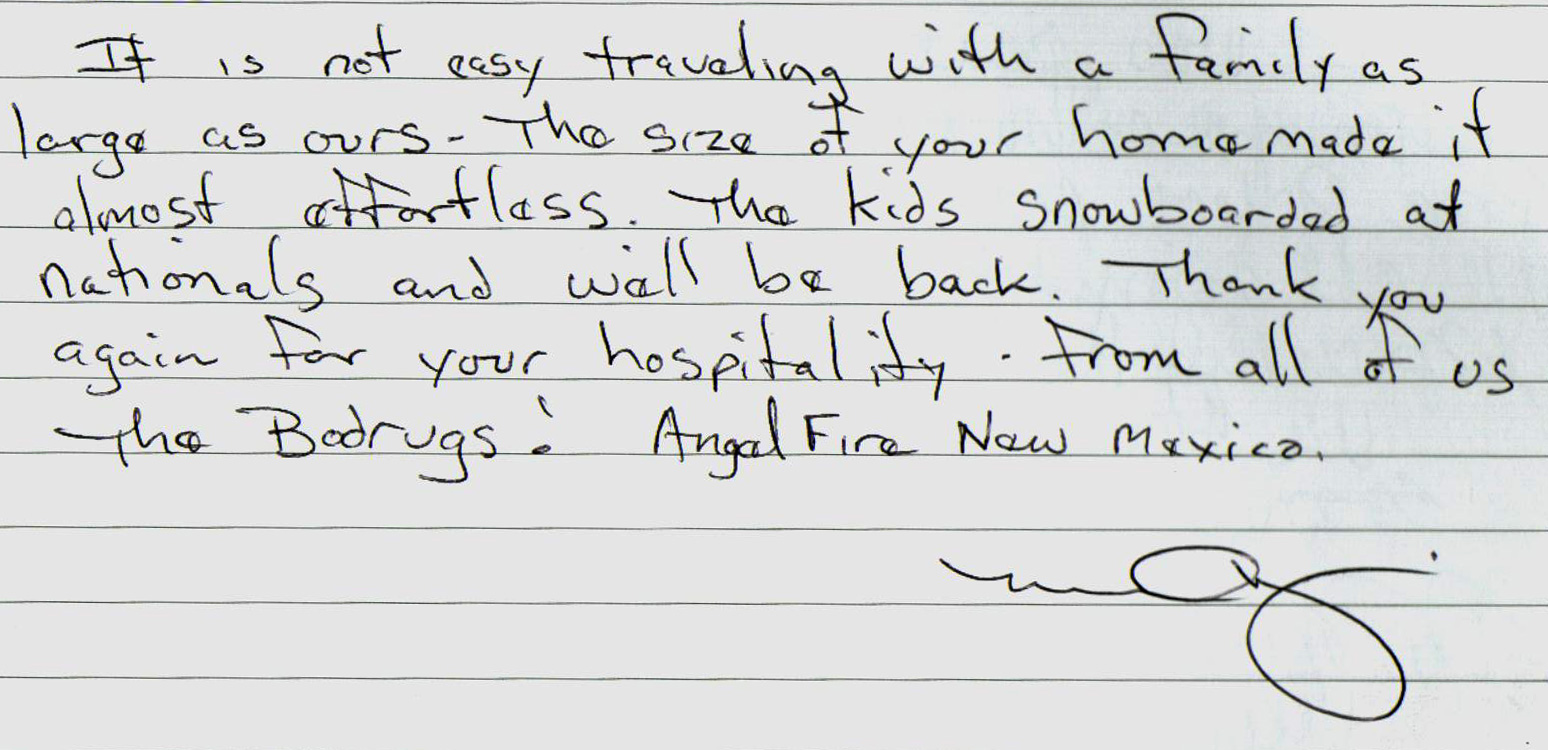 It is not easy traveling with a family as
large as ours - The size of your home made it
almost effortless. The kids snowboarded at
nationals and will be back. Thank you
again for your hospitality. From all of us
The Bodrugs! Angel Fire New Mexico.